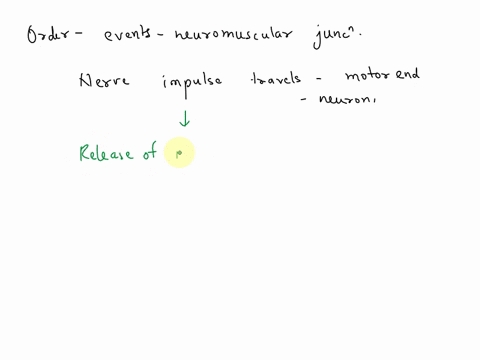 Order - events - neuromuscular juncⁿ.
Nerve impulse travels - motor end
- neuron,
Release of